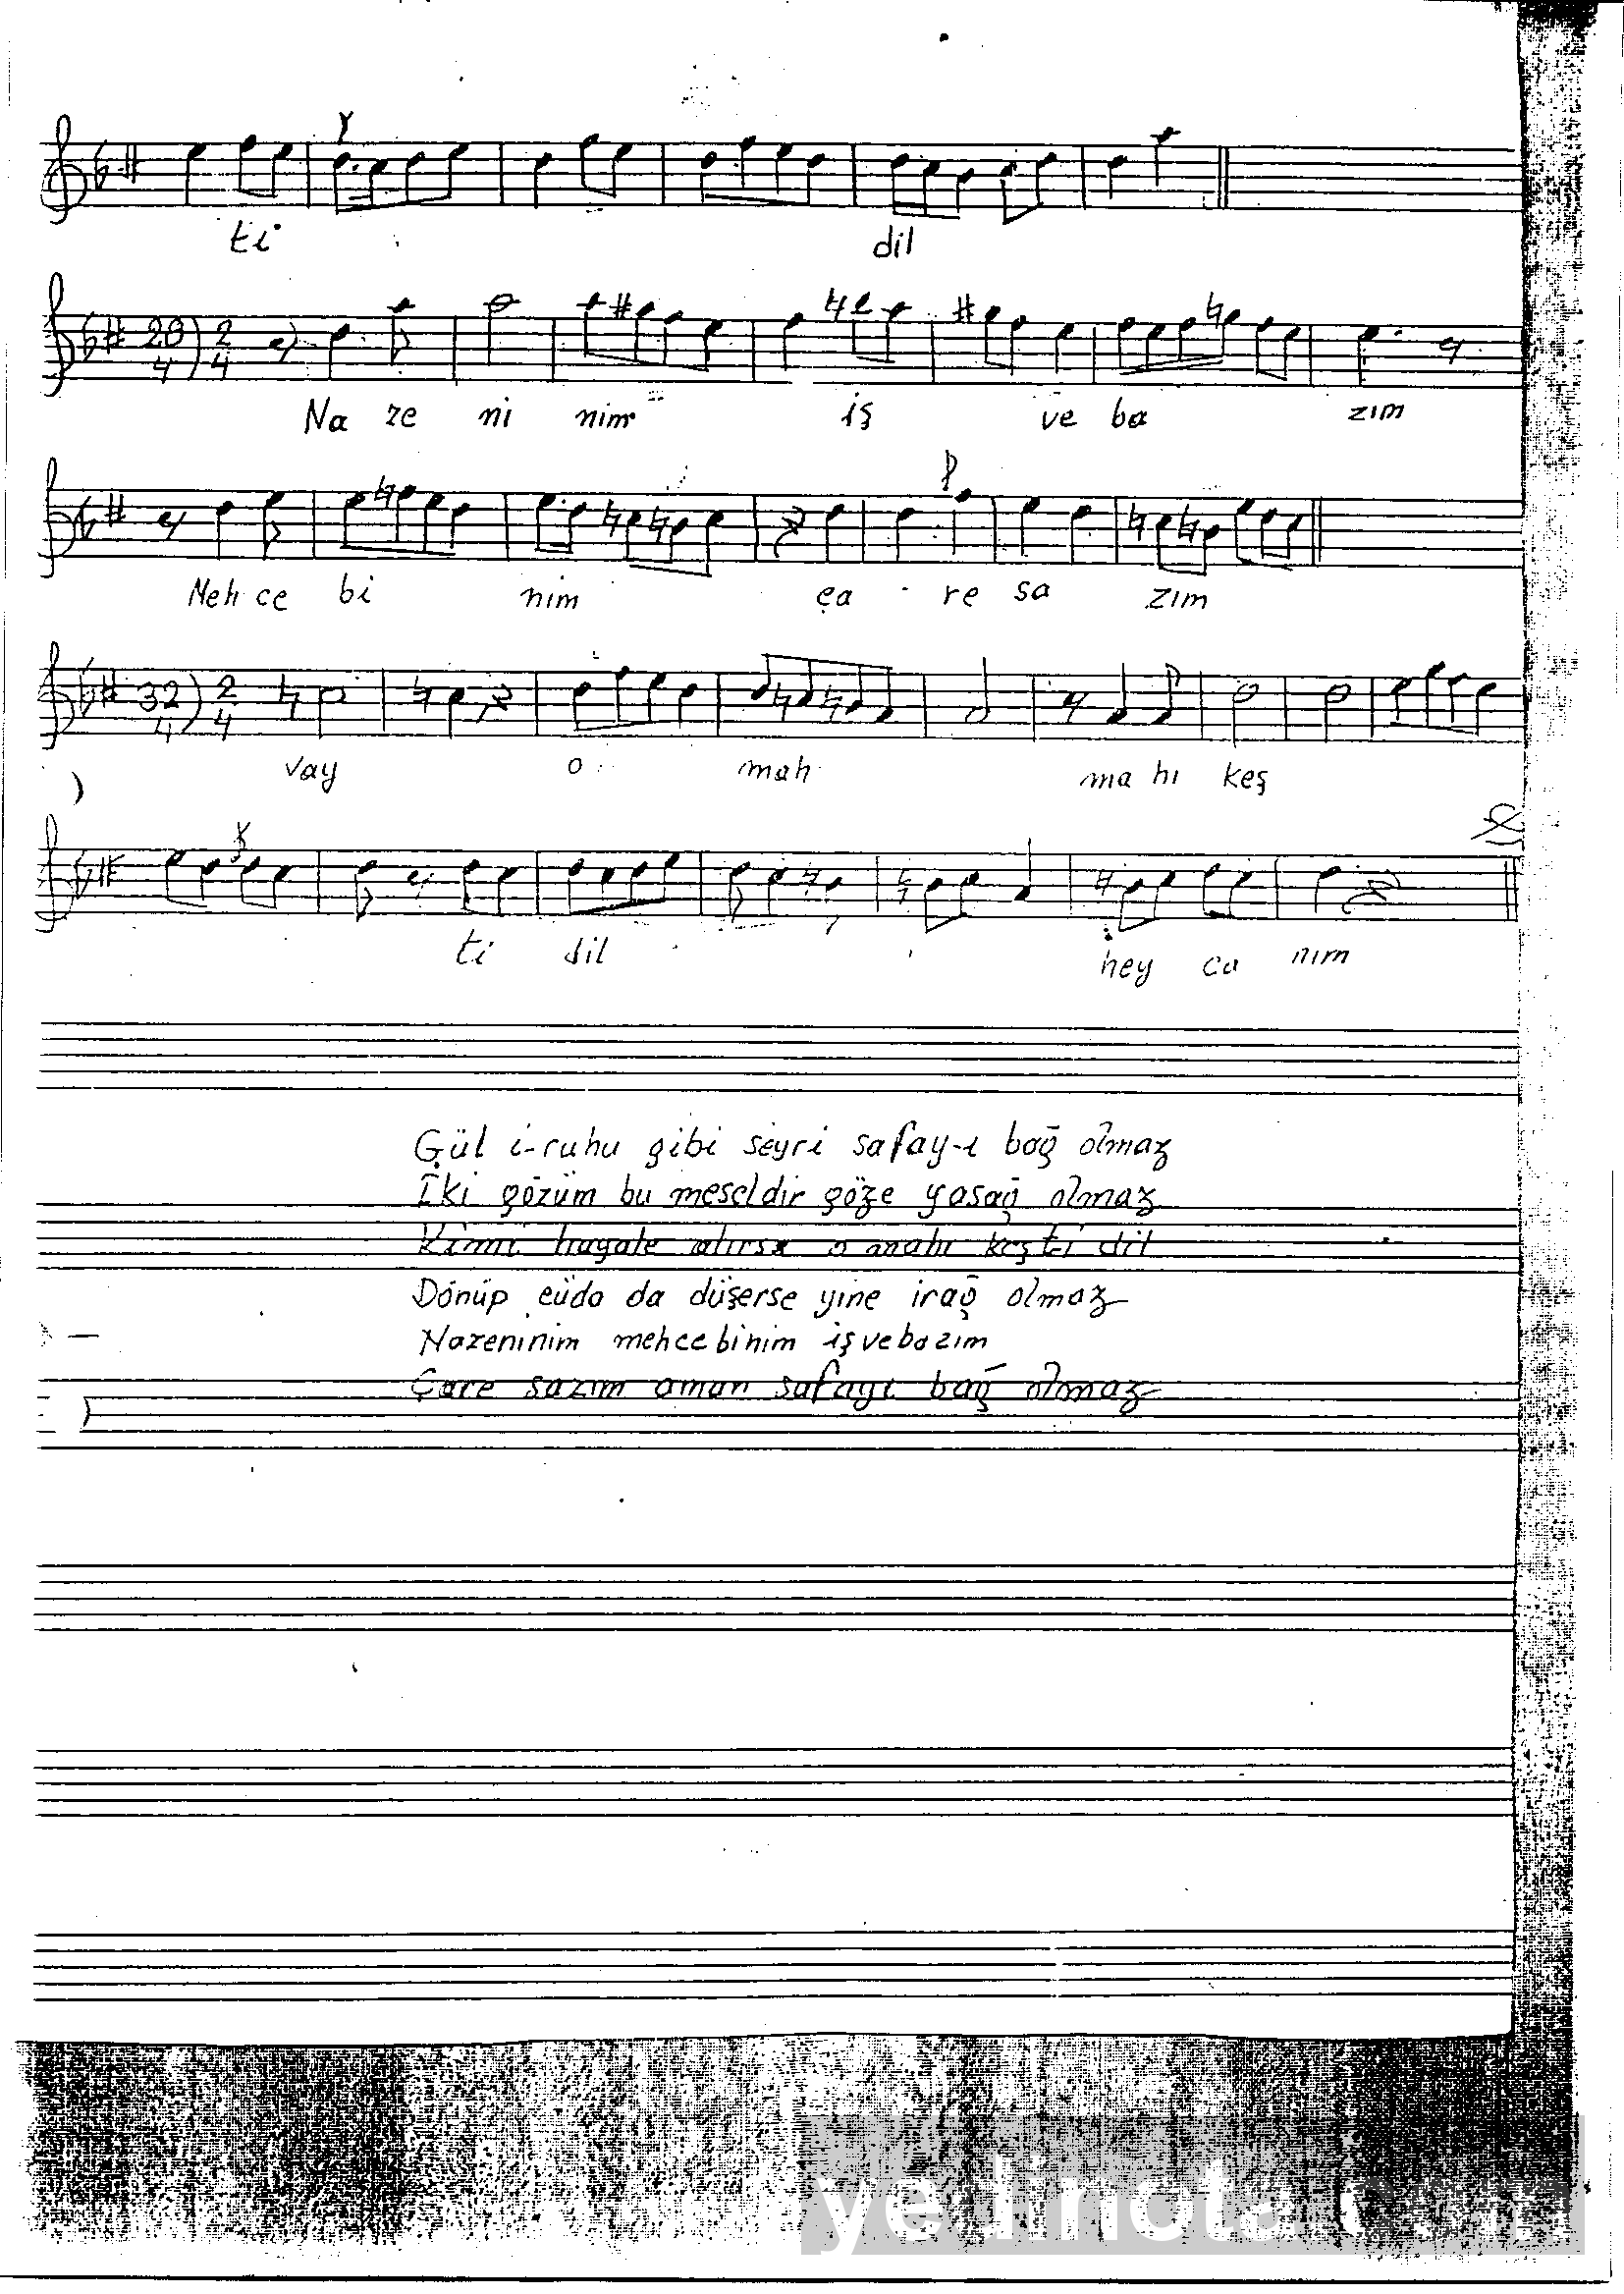 ti dil
28/4) 2/4
Na ze ni nim iş ve ba zım
Meh ce bi nim ça re sa zım
32/4) 2/4
vay o mah ma hı keş
ti dil hey ca nım
Gül i-ruhu gibi seyri safay-ı bağ olmaz
İki gözüm bu meseldir göze yasağ olmaz
Kimi hayale alırsa o mahı keşti dil
Dönüp da düşerse yine irağ olmaz
Nazeninim mehcebinim işvebazım
Çare sazım aman safayı bağ olmaz
yedinota.com